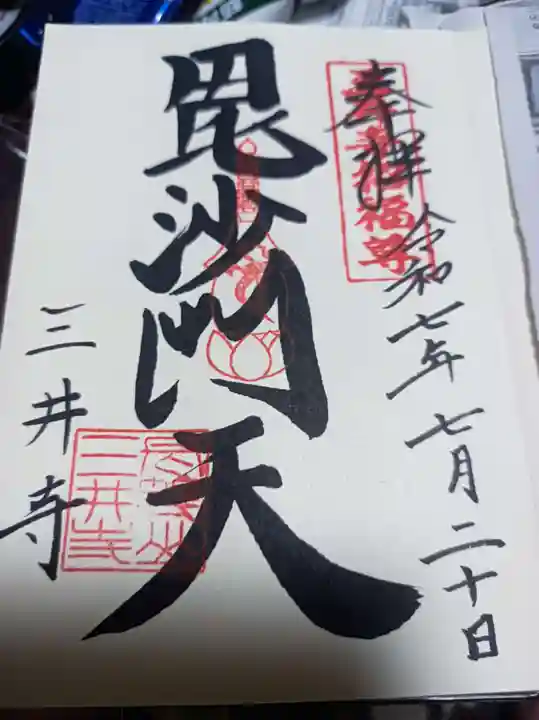 奉拝
令和七年七月二十日
毘沙門天
三井寺
三井寺